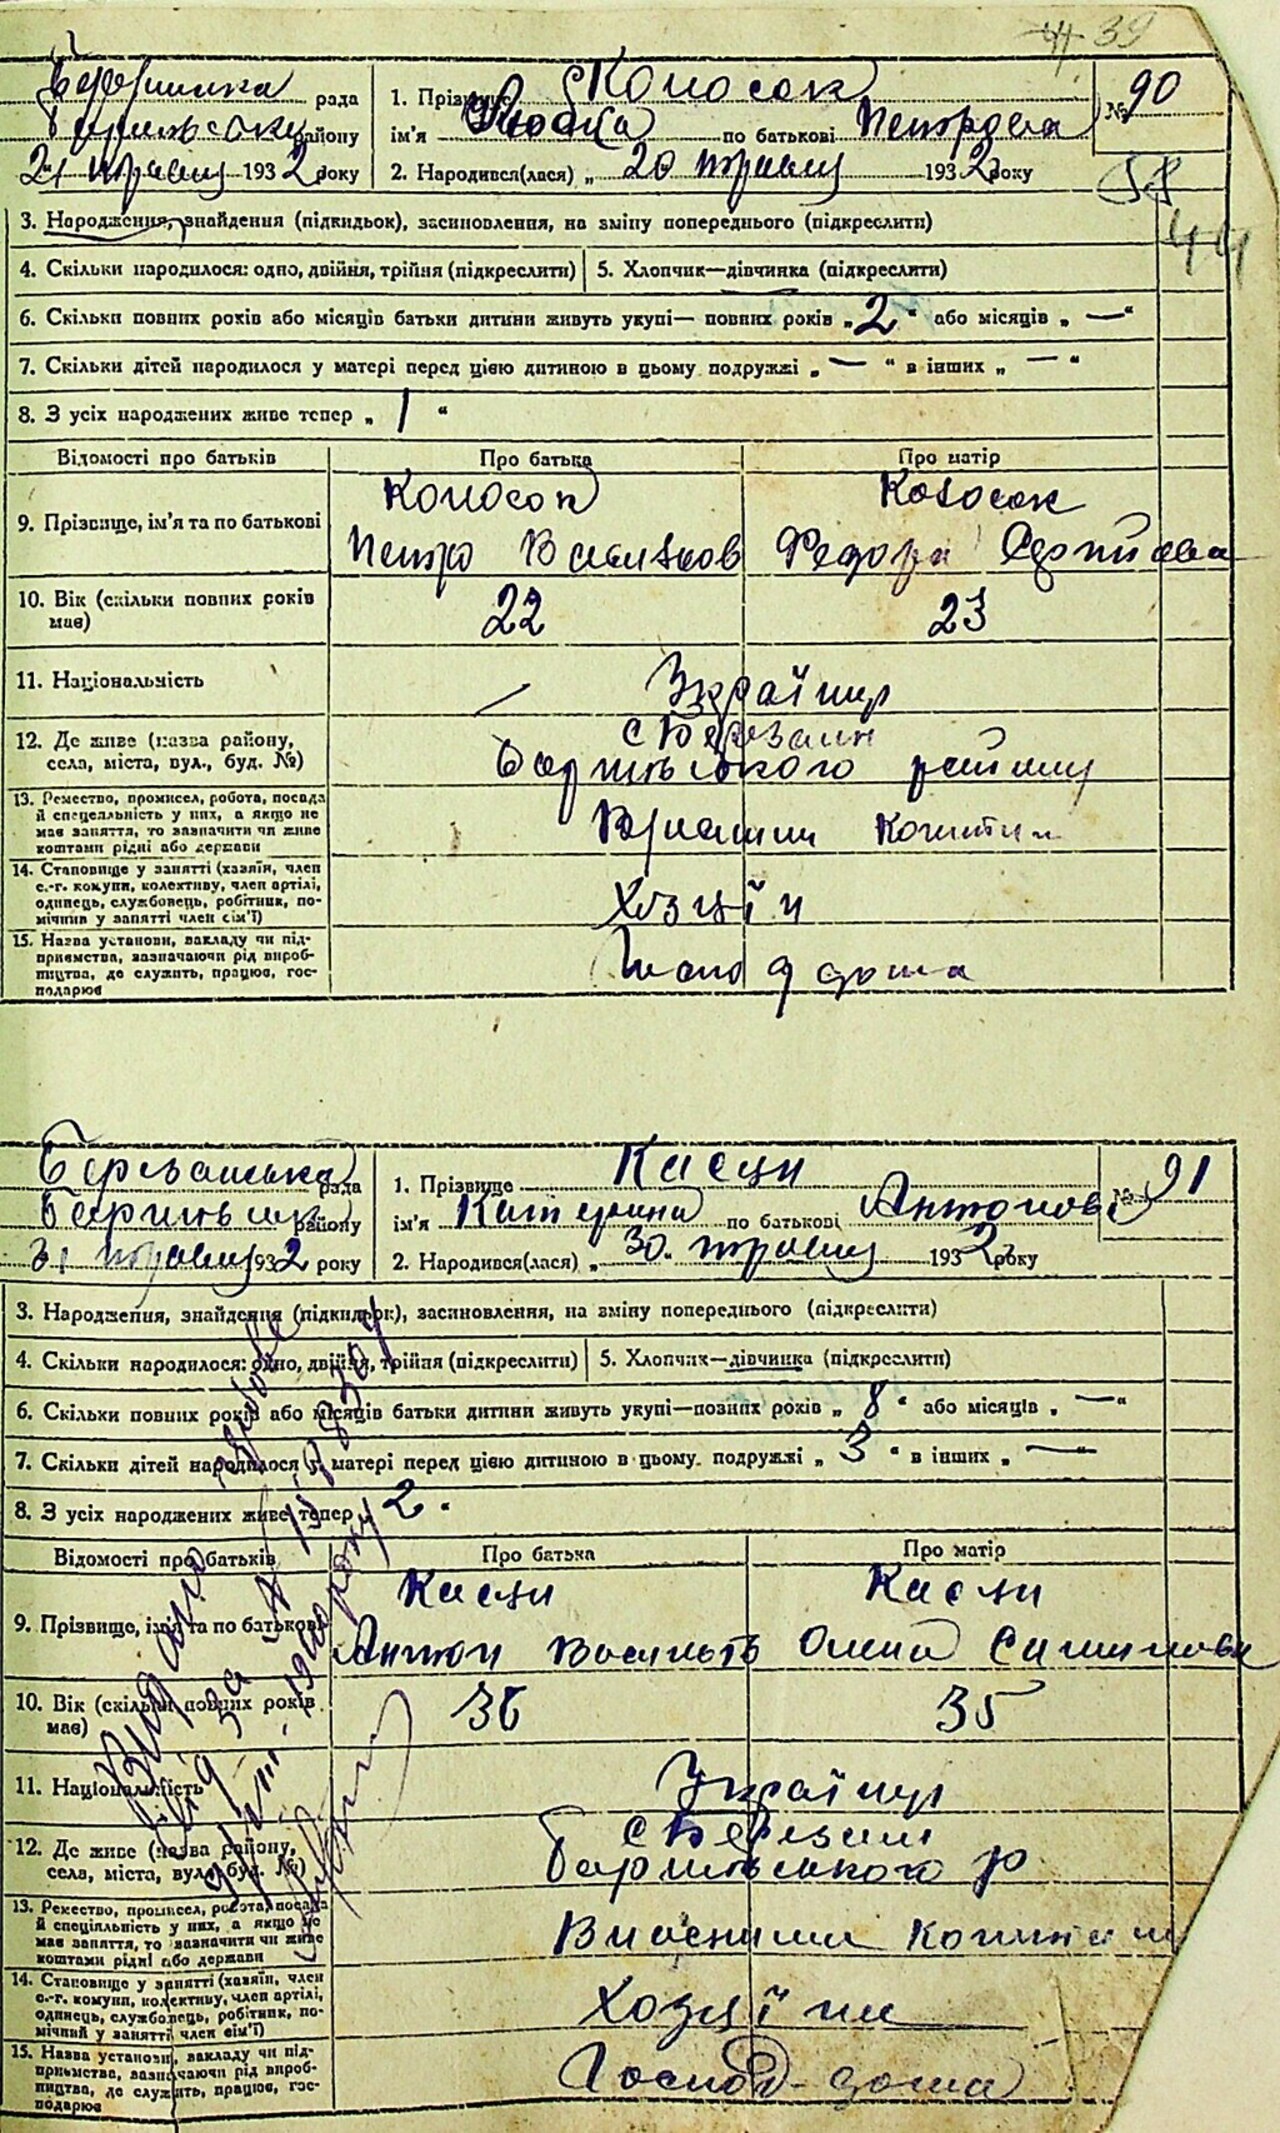 39
рада
1. Прізвище Колосок
№ 90
району
ім'я по батькові Петровна
21 травня 1932 року
2. Народився(лася) „ 20 травня 1932 року
58
3. Народження, знайдення (підкидьок), засиновлення, на зміну попереднього (підкреслити)
44
4. Скільки народилося: одно, двійня, трійня (підкреслити)
5. Хлопчик—дівчинка (підкреслити)
6. Скільки повних років або місяців батьки дитини живуть укупі— повних років „ 2 “ або місяців „ — “
7. Скільки дітей народилося у матері перед цією дитиною в цьому подружжі „ — “ в інших „ — “
8. З усіх народжених живе тепер „ 1 “
Відомості про батьків
Про батька
Про матір
9. Прізвище, ім'я та по батькові
Колосок
Колосок
Петро Васильов
Федора
10. Вік (скільки повних років має)
22
23
11. Національність
Українці
12. Де живе (назва району, села, міста, вул., буд. №)
с Березань
Баришівського району
13. Ремество, промисел, робота, посада й спеціяльність у них, а якщо не має заняття, то зазначити чи живе коштами рідні або держави
14. Становище у занятті (хазяїн, член с.-г. комуни, колективу, член артілі, одинець, службовець, робітник, помічник у занятті член сім'ї)
Хозяїн
15. Назва установи, закладу чи підприємства, зазначаючи рід виробництва, де служить, працює, господарює
дома
Березанська рада
1. Прізвище Касян
№ 91
району
ім'я Катерина по батькові Антонов
31 травня 1932 року
2. Народився(лася) „ 30 „ травня 1932 року
3. Народження, знайдення (підкидьок), засиновлення, на зміну попереднього (підкреслити)
4. Скільки народилося: одно, двійня, трійня (підкреслити)
5. Хлопчик—дівчинка (підкреслити)
6. Скільки повних років або місяців батьки дитини живуть укупі—повних років „ 8 “ або місяців „ — “
7. Скільки дітей народилося у матері перед цією дитиною в цьому подружжі „ 3 “ в інших „ — “
8. З усіх народжених живе тепер „ 2 “
Відомості про батьків
Про батька
Про матір
9. Прізвище, ім'я та по батькові
Касян
Касян
Антон Васильов
Олена
10. Вік (скільки повних років має)
36
35
11. Національність
Українці
12. Де живе (назва району, села, міста, вул., буд. №)
с Березань
Баришівського р
13. Ремество, промисел, робота, посада й спеціяльність у них, а якщо не має заняття, то зазначити чи живе коштами рідні або держави
Власними коштами
14. Становище у занятті (хазяїн, член с.-г. комуни, колективу, член артілі, одинець, службовець, робітник, помічник у занятті член сім'ї)
Хозяїни
15. Назва установи, закладу чи підприємства, зазначаючи рід виробництва, де служить, працює, господарює
Господ- дома